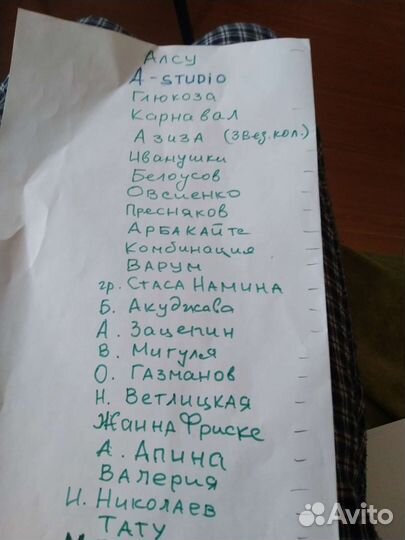 Алсу
A-STUDIO
Глюкоза
Карнавал
Азиза (Звез.кол.)
Иванушки
Белоусов
Овсиенко
Пресняков
Арбакайте
Комбинация
Варум
гр. Стаса Намина
Б. Акуджава
А. Зацепин
В. Мигуля
О. Газманов
Н. Ветлицкая
Жанна Фриске
А. Апина
Валерия
И. Николаев
Тату
Avito